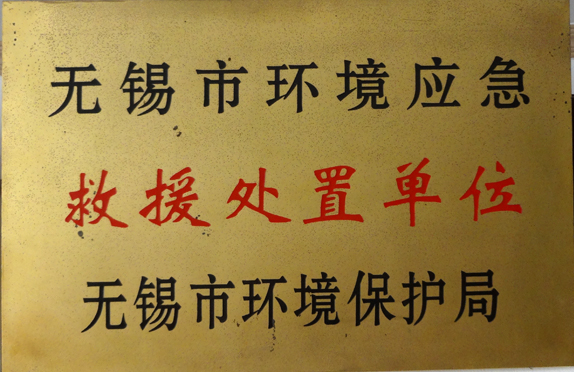 无锡市环境应急
救援处置单位
无锡市环境保护局